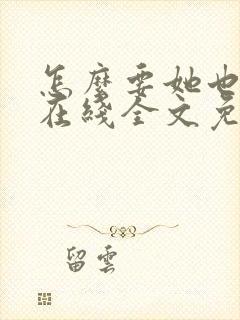 怎麼要她也
在綫全文免
留雲